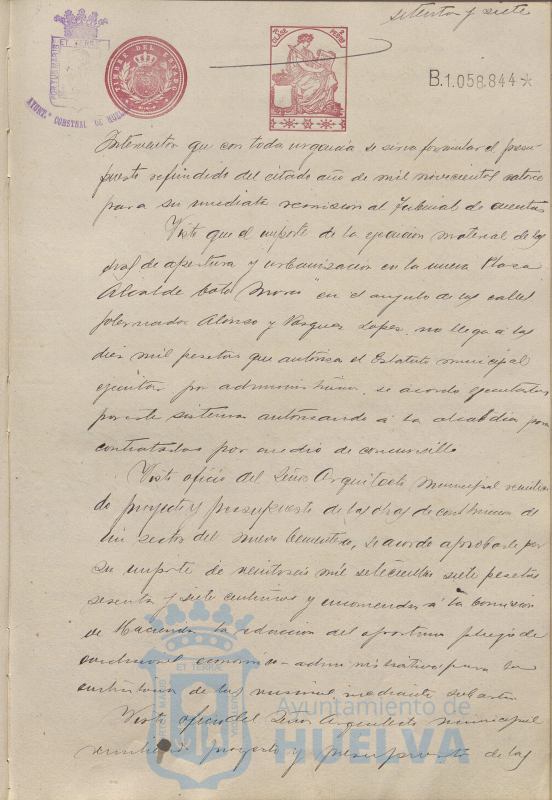 setenta y siete
PORTUS MARIS
ET TERRE
AYUNT.º CONSTNAL DE HUELVA
TIMBRE DEL ESTADO
CLASE
B.1.058.844*
Interventor que con toda urgencia se sirva formular el presu
puesto refundido del citado año de mil novecientos catorce
para su inmediata remision al Tribunal de cuentas
Visto que el importe de la ejecucion material de las
obras de apertura y urbanizacion en la nueva Plaza
Alcalde Coto Mora" en el angulo de las calles
Gobernador Alonso y Vazquez Lopez, no llega á las
diez mil pesetas que autoriza el Estatuto municipal
ejecutar por administracion, se acordo ejecutarlas
por este sistema autorizando á la alcaldia para
contratarlas por medio de concursillo
Visto oficio del Señor Arquitecto Municipal remitien
do proyecto y presupuesto de las obras de continuacion de
un sector del nuevo Cementerio, se acordo aprobarle por
su importe de veintiseis mil setecientas siete pesetas
sesenta y siete centimos y encomendar á la Comision
de Hacienda la redaccion del oportuno pliego de
condiciones economico-administrativas para la
contratacion de las mismas mediante subasta
Visto oficio del Señor Arquitecto municipal
remitiendo proyecto y presupuesto de las
PORTUS MARIS
ET TERRE
CUSTODIA
Ayuntamiento de
HUELVA